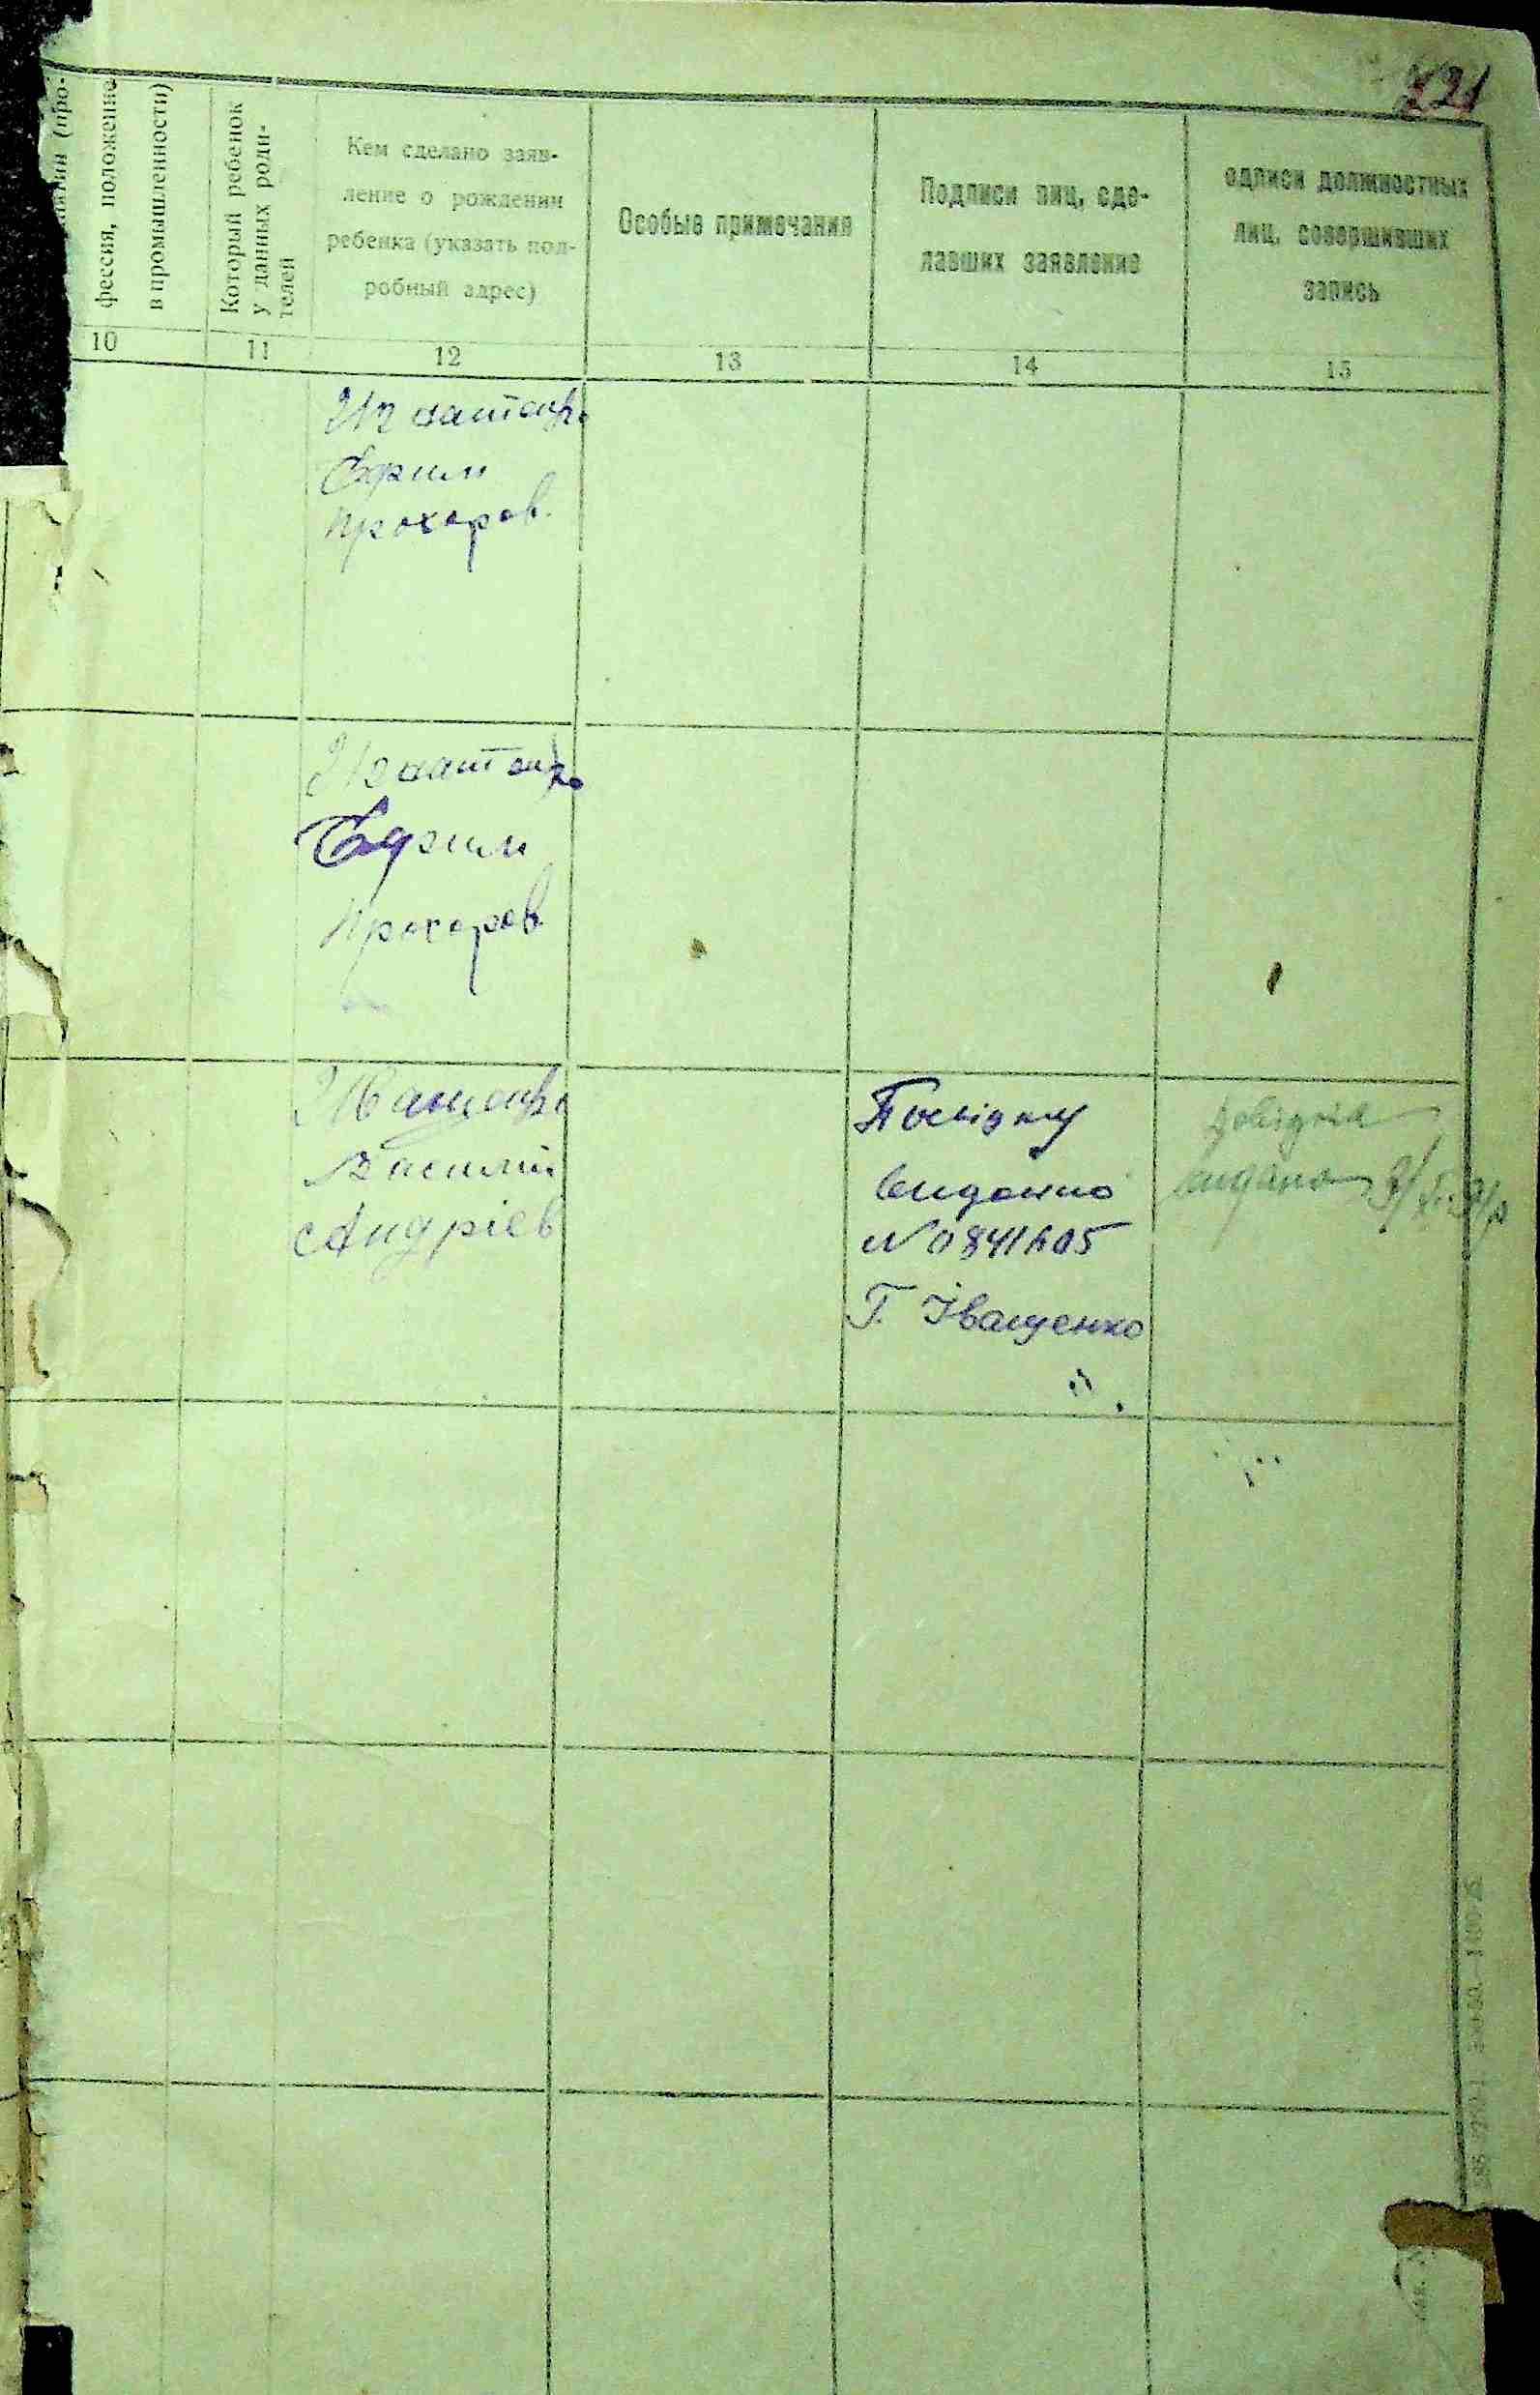 221
фессия, положение
в промышленности)
Который ребенок
у данных роди-
телей
Кем сделано заяв-
ление о рождении
ребенка (указать под-
робный адрес)
Особые примечания
Подписи лиц, сде-
лавших заявление
одписи должностных
лиц, совершивших
запись
10
11
12
13
14
15
Ефим
Прохоров.
Ефим
Прохоров
Василий
Андріев
Посвідку
видонно
N0841605
Г. Іващенко